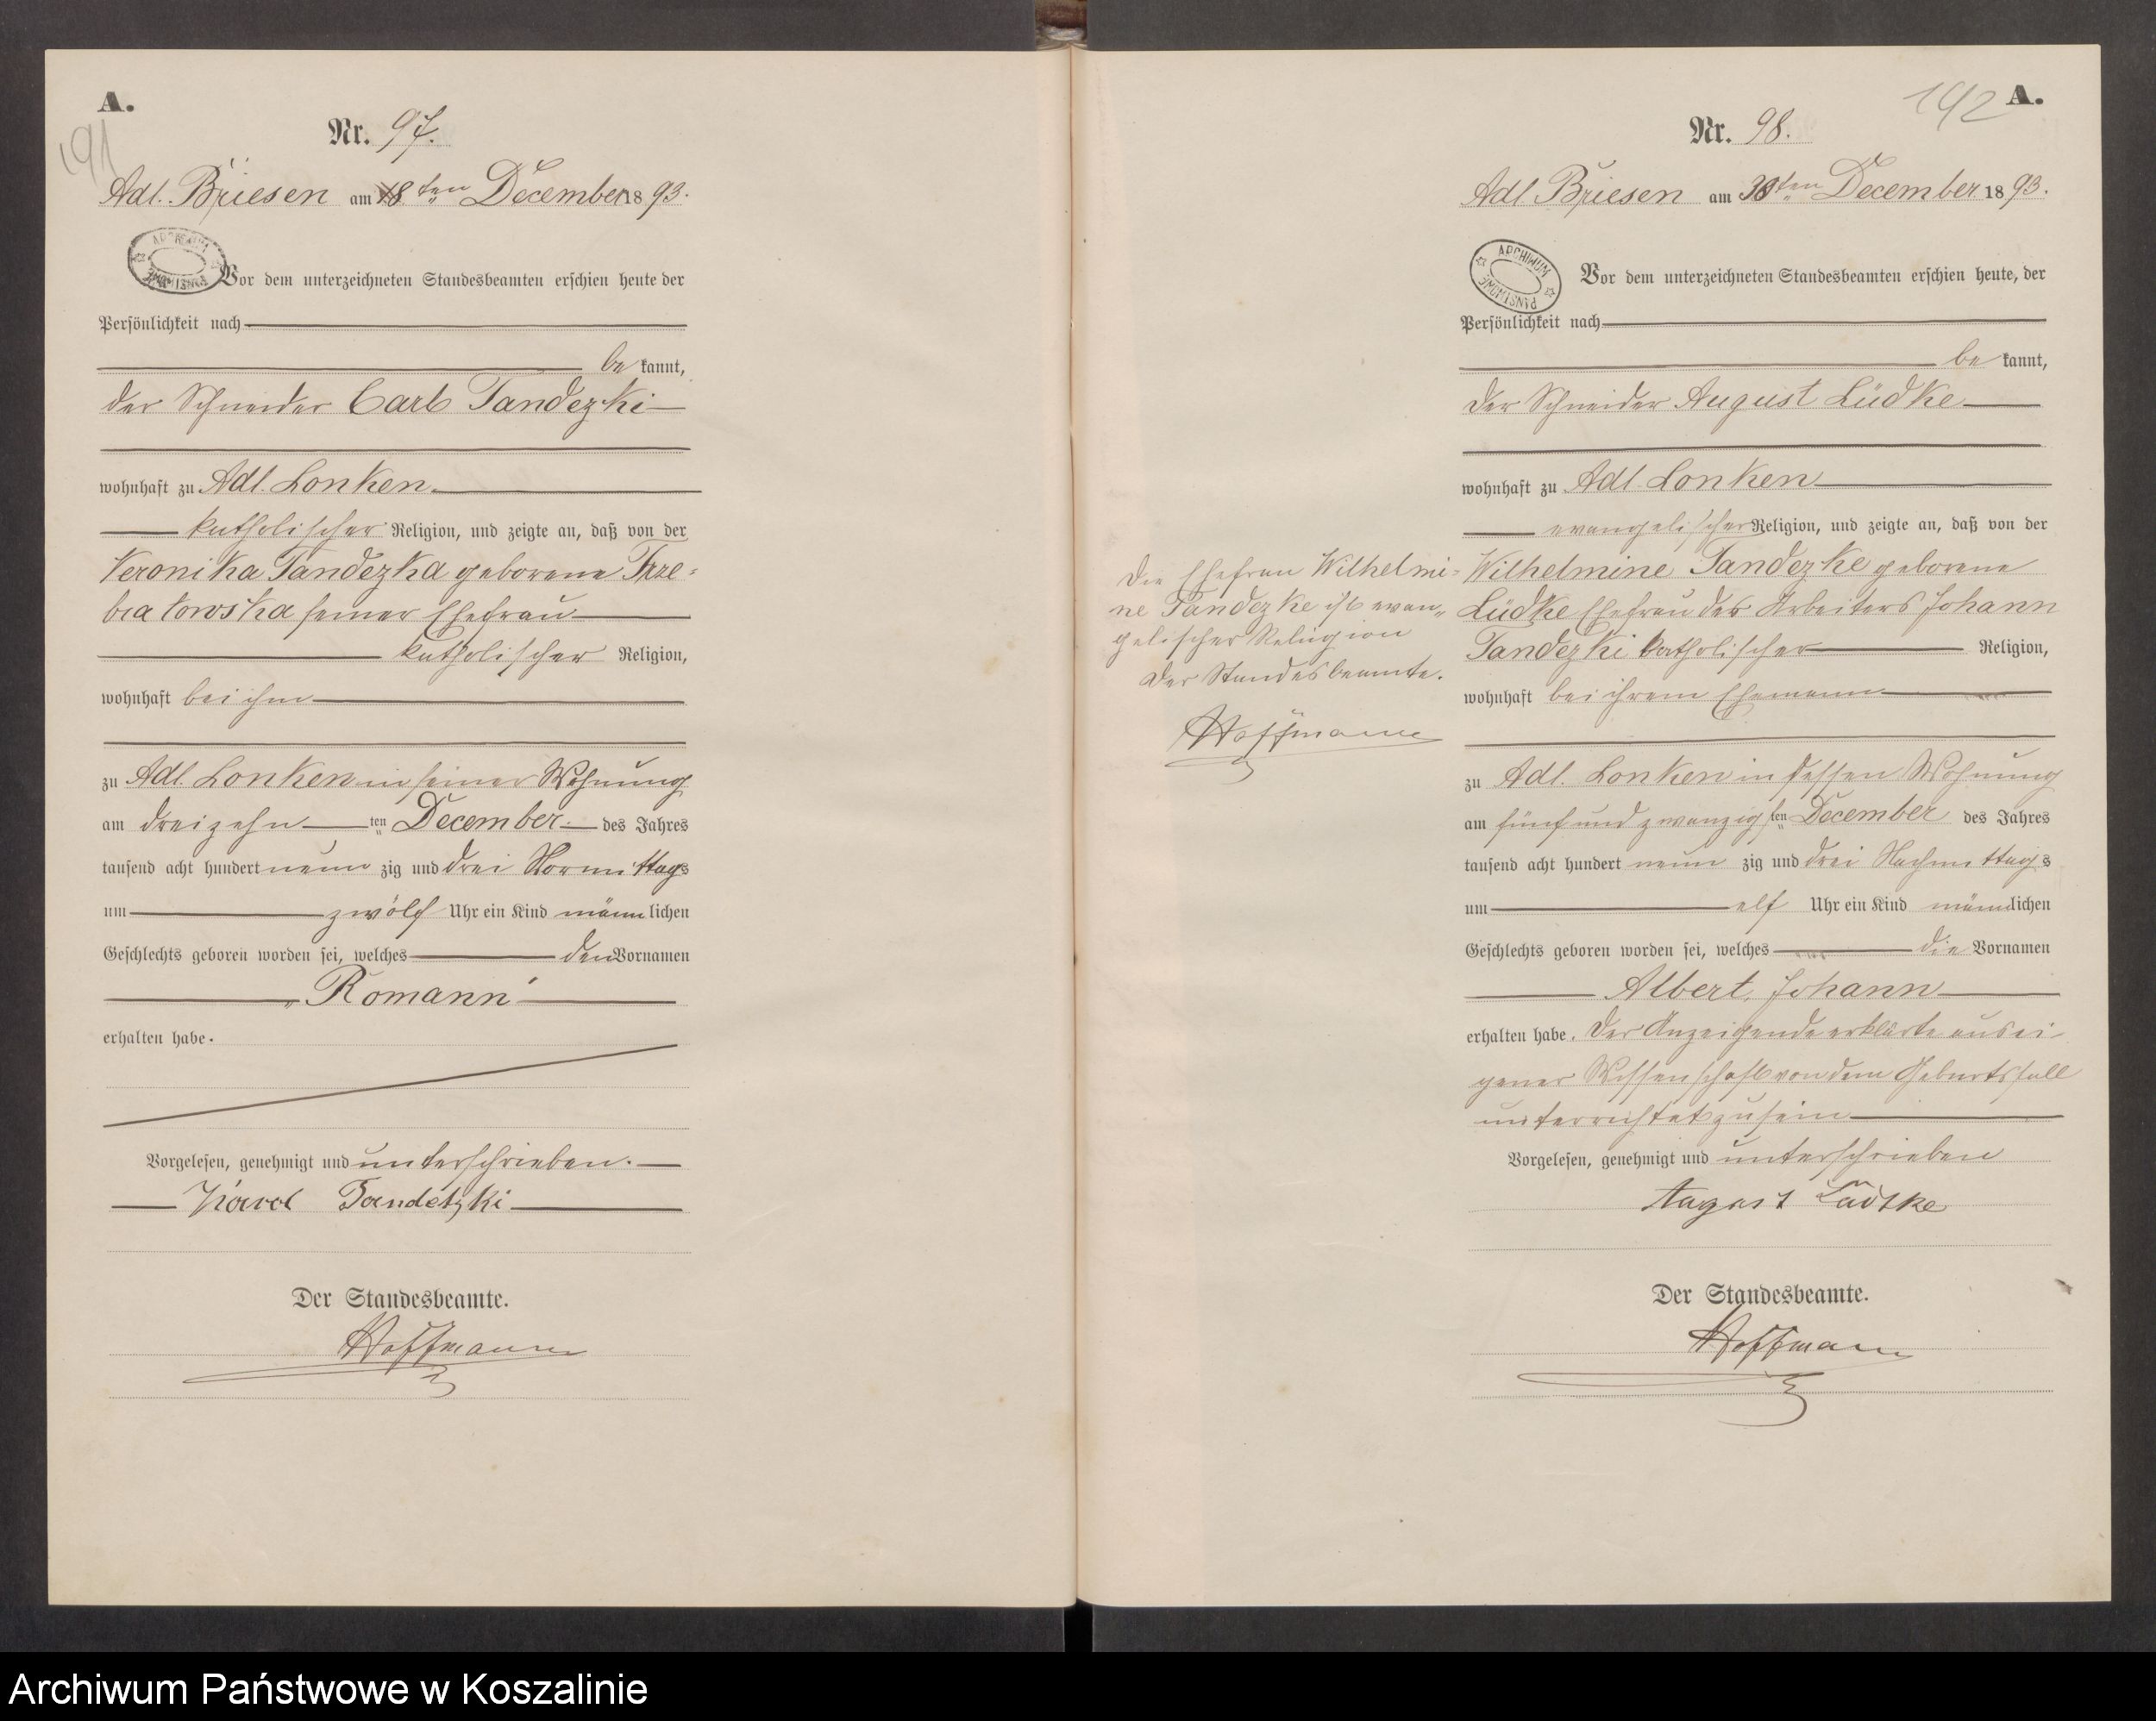 A.
191
Nr. 97.
Adl. Briesen am 18ten December 1893.
ARCHIWUM PAŃSTWOWE
Vor dem unterzeichneten Standesbeamten erschien heute der
Persönlichkeit nach
be kannt,
der Schneider Carl Tandezki
wohnhaft zu Adl. Lonken.
katholischer Religion, und zeigte an, daß von der
Veronika Tandezka geborene Trze-
biatowska seiner Ehefrau
katholischer Religion,
wohnhaft bei ihm
zu Adl. Lonken in seiner Wohnung
am dreizehn ten December des Jahres
tausend acht hundert neun zig und drei Vormittags
um zwölf Uhr ein Kind männlichen
Geschlechts geboren worden sei, welches den Vornamen
„Romann"
erhalten habe.
Vorgelesen, genehmigt und unterschrieben.
Karol Tandetzki
Der Standesbeamte.
Hoffmann
192 A.
Nr. 98.
Adl. Briesen am 30ten December 1893.
ARCHIWUM PAŃSTWOWE
Vor dem unterzeichneten Standesbeamten erschien heute, der
Persönlichkeit nach
be kannt,
der Schneider August Lüdke
wohnhaft zu Adl. Lonken
evangelischer Religion, und zeigte an, daß von der
Wilhelmine Tandezke geborene
Lüdke Ehefrau des Arbeiters Johann
Tandezki katholischer Religion,
wohnhaft bei ihrem Ehemann
zu Adl. Lonken in dessen Wohnung
am fünf und zwanzigsten December des Jahres
tausend acht hundert neun zig und drei Nachmittags
um elf Uhr ein Kind männlichen
Geschlechts geboren worden sei, welches die Vornamen
Albert, Johann
erhalten habe. Der Anzeigende erklärte aus ei-
gener Wissenschaft von dem Geburtsfall
unterrichtet zu sein
Vorgelesen, genehmigt und unterschrieben
August Lüdtke
Der Standesbeamte.
Hoffmann
Die Ehefrau Wilhelmi-
ne Tandezke ist evan-
gelischer Religion
Der Standesbeamte.
Hoffmann
Archiwum Państwowe w Koszalinie